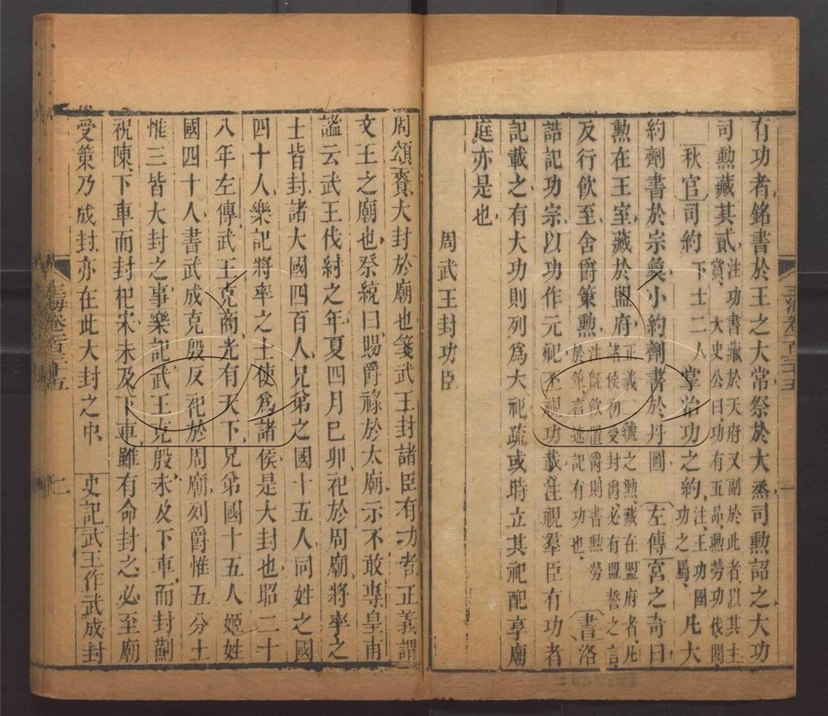 有功者銘書於王之大常祭於大烝司勲詔之大功
司勲藏其貳注功書藏於天府又副於此者以其主賞大史公曰功有五品勲勞功伐閱
秋官司約下士二人掌治功之約注王功國功之屬凡大
約劑書於宗彝小約劑書於丹圖左傳宮之奇曰
勲在王室藏於盟府正義二號之勲藏在盟府者凡諸侯初受封爵必有盟誓之言
反行飲至舍爵策勲注旣飲置爵則書勲勞於策言速記有功也書洛
誥記功宗以功作元祀丕視功載注視羣臣有功者
記載之有大功則列爲大祀疏或時立其祀配享廟
庭亦是也
周武王封功臣
周頌賚大封於廟也箋武王封諸臣有功者正義謂
文王之廟也祭統曰賜爵祿於太廟示不敢專皇甫
謐云武王伐紂之年夏四月乙卯祀於周廟將率之
士皆封諸大國四百人兄弟之國十五人同姓之國
四十人樂記將率之士使爲諸侯是大封也昭二十
八年左傳武王克商光有天下兄弟國十五人姬姓
國四十人書武成克殷反祀於周廟列爵惟五分土
惟三皆大封之事樂記武王克殷未及下車而封薊
祝陳下車而封杞宋未及下車雖有命封之必至廟
受策乃成封亦在此大封之中史記武王作武成封
玉海卷一百三十五
一
玉海卷一百三十五
二